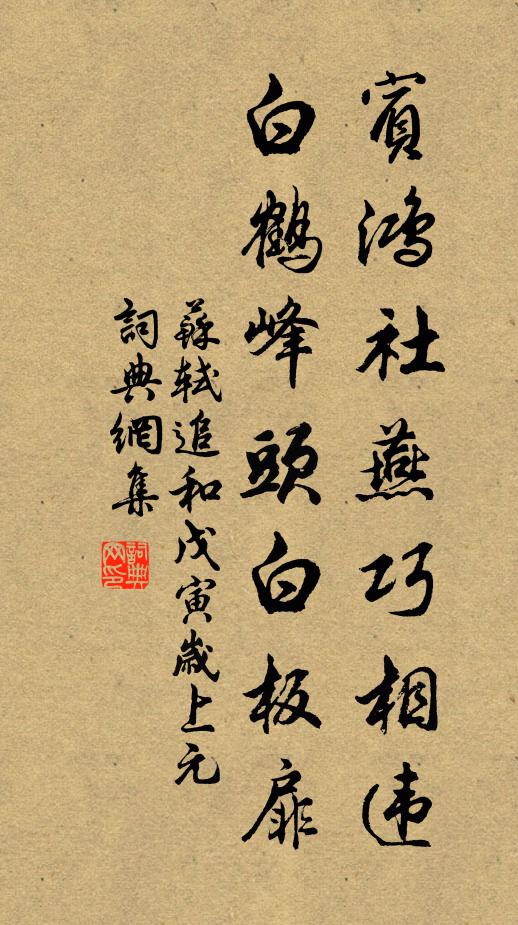 賓鴻社燕巧相違
白鶴峰頭白板扉
蘇軾追和戊寅歲上元
詞典網集
詞典網印